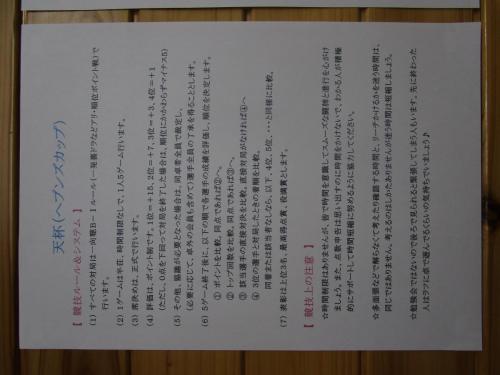 天杯（ヘブンズカップ）
【 競技ルール＆システム 】
（1） すべての対局は一向聴B－1ルール（一発裏ドラなどアリ・順位ポイント戦）で
行います。
（2） 1ゲームは半荘、時間無制限なしで、1人5ゲーム行います。
（3） 席決めは、正式で行います。
（4） 評価は、ポイント制です。1位＝＋15、2位＝＋7、3位＝＋3、4位＝＋1
（ただし、0点を下回って対局を終了した場合は、順位にかかわらずマイナス5）
（5） その他、協議が必要となった場合は、同卓者全員で裁定し、
（必要に応じて、卓外の会員も含めて）選手全員の了承を得ることとします。
（6） 5ゲーム終了後に、以下の順で各選手の成績を評価し、順位を決定します。
① ポイントを比較。同点であれば②へ。
② トップ回数を比較。同点であれば③へ。
③ 該当選手の直接対決を比較。直接対局がなければ④へ
④ 3位の選手と対局したときの着順を比較。
同着または該当者なしなら、以下、4位、5位、・・・と同様に比較。
（7） 表彰は上位3名、最高得点賞、役満賞とします。
【 競技上の注意 】
☆時間制限はありませんが、皆で時間を意識してスムーズな闘牌と進行を心がけ
ましょう。また、点数申告は思い出すのに時間をかけないで、わかる人が積極
的にサポートして時間短縮に努めるように協力してください。
☆多面張などで解らなくて考えたり確認する時間と、リーチかけるかを迷う時間は、
同じではありません。考えるのはしかたありませんが迷う時間は短縮しましょう。
☆勉強会ではないので後ろで見られると緊張してしまう人もいます。先に終わった
人はラフに卓で遊んでるくらいの気持ちでいましょう♪